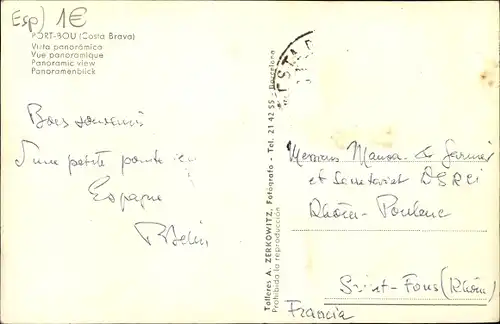 Esp) 1€
PORT-BOU (Costa Brava)
Vista panorámica
Vue panoramique
Panoramic view
Panoramenblick
Bons souvenirs
d'une petite pointe en
Espagne
Talleres A. ZERKOWITZ, Fotógrafo - Tel. 21 42 55 - Barcelona
Prohibida la reproducción
Messieurs
et Secretariat
Rhône-Poulenc
Saint-Fons (Rhône)
Francia